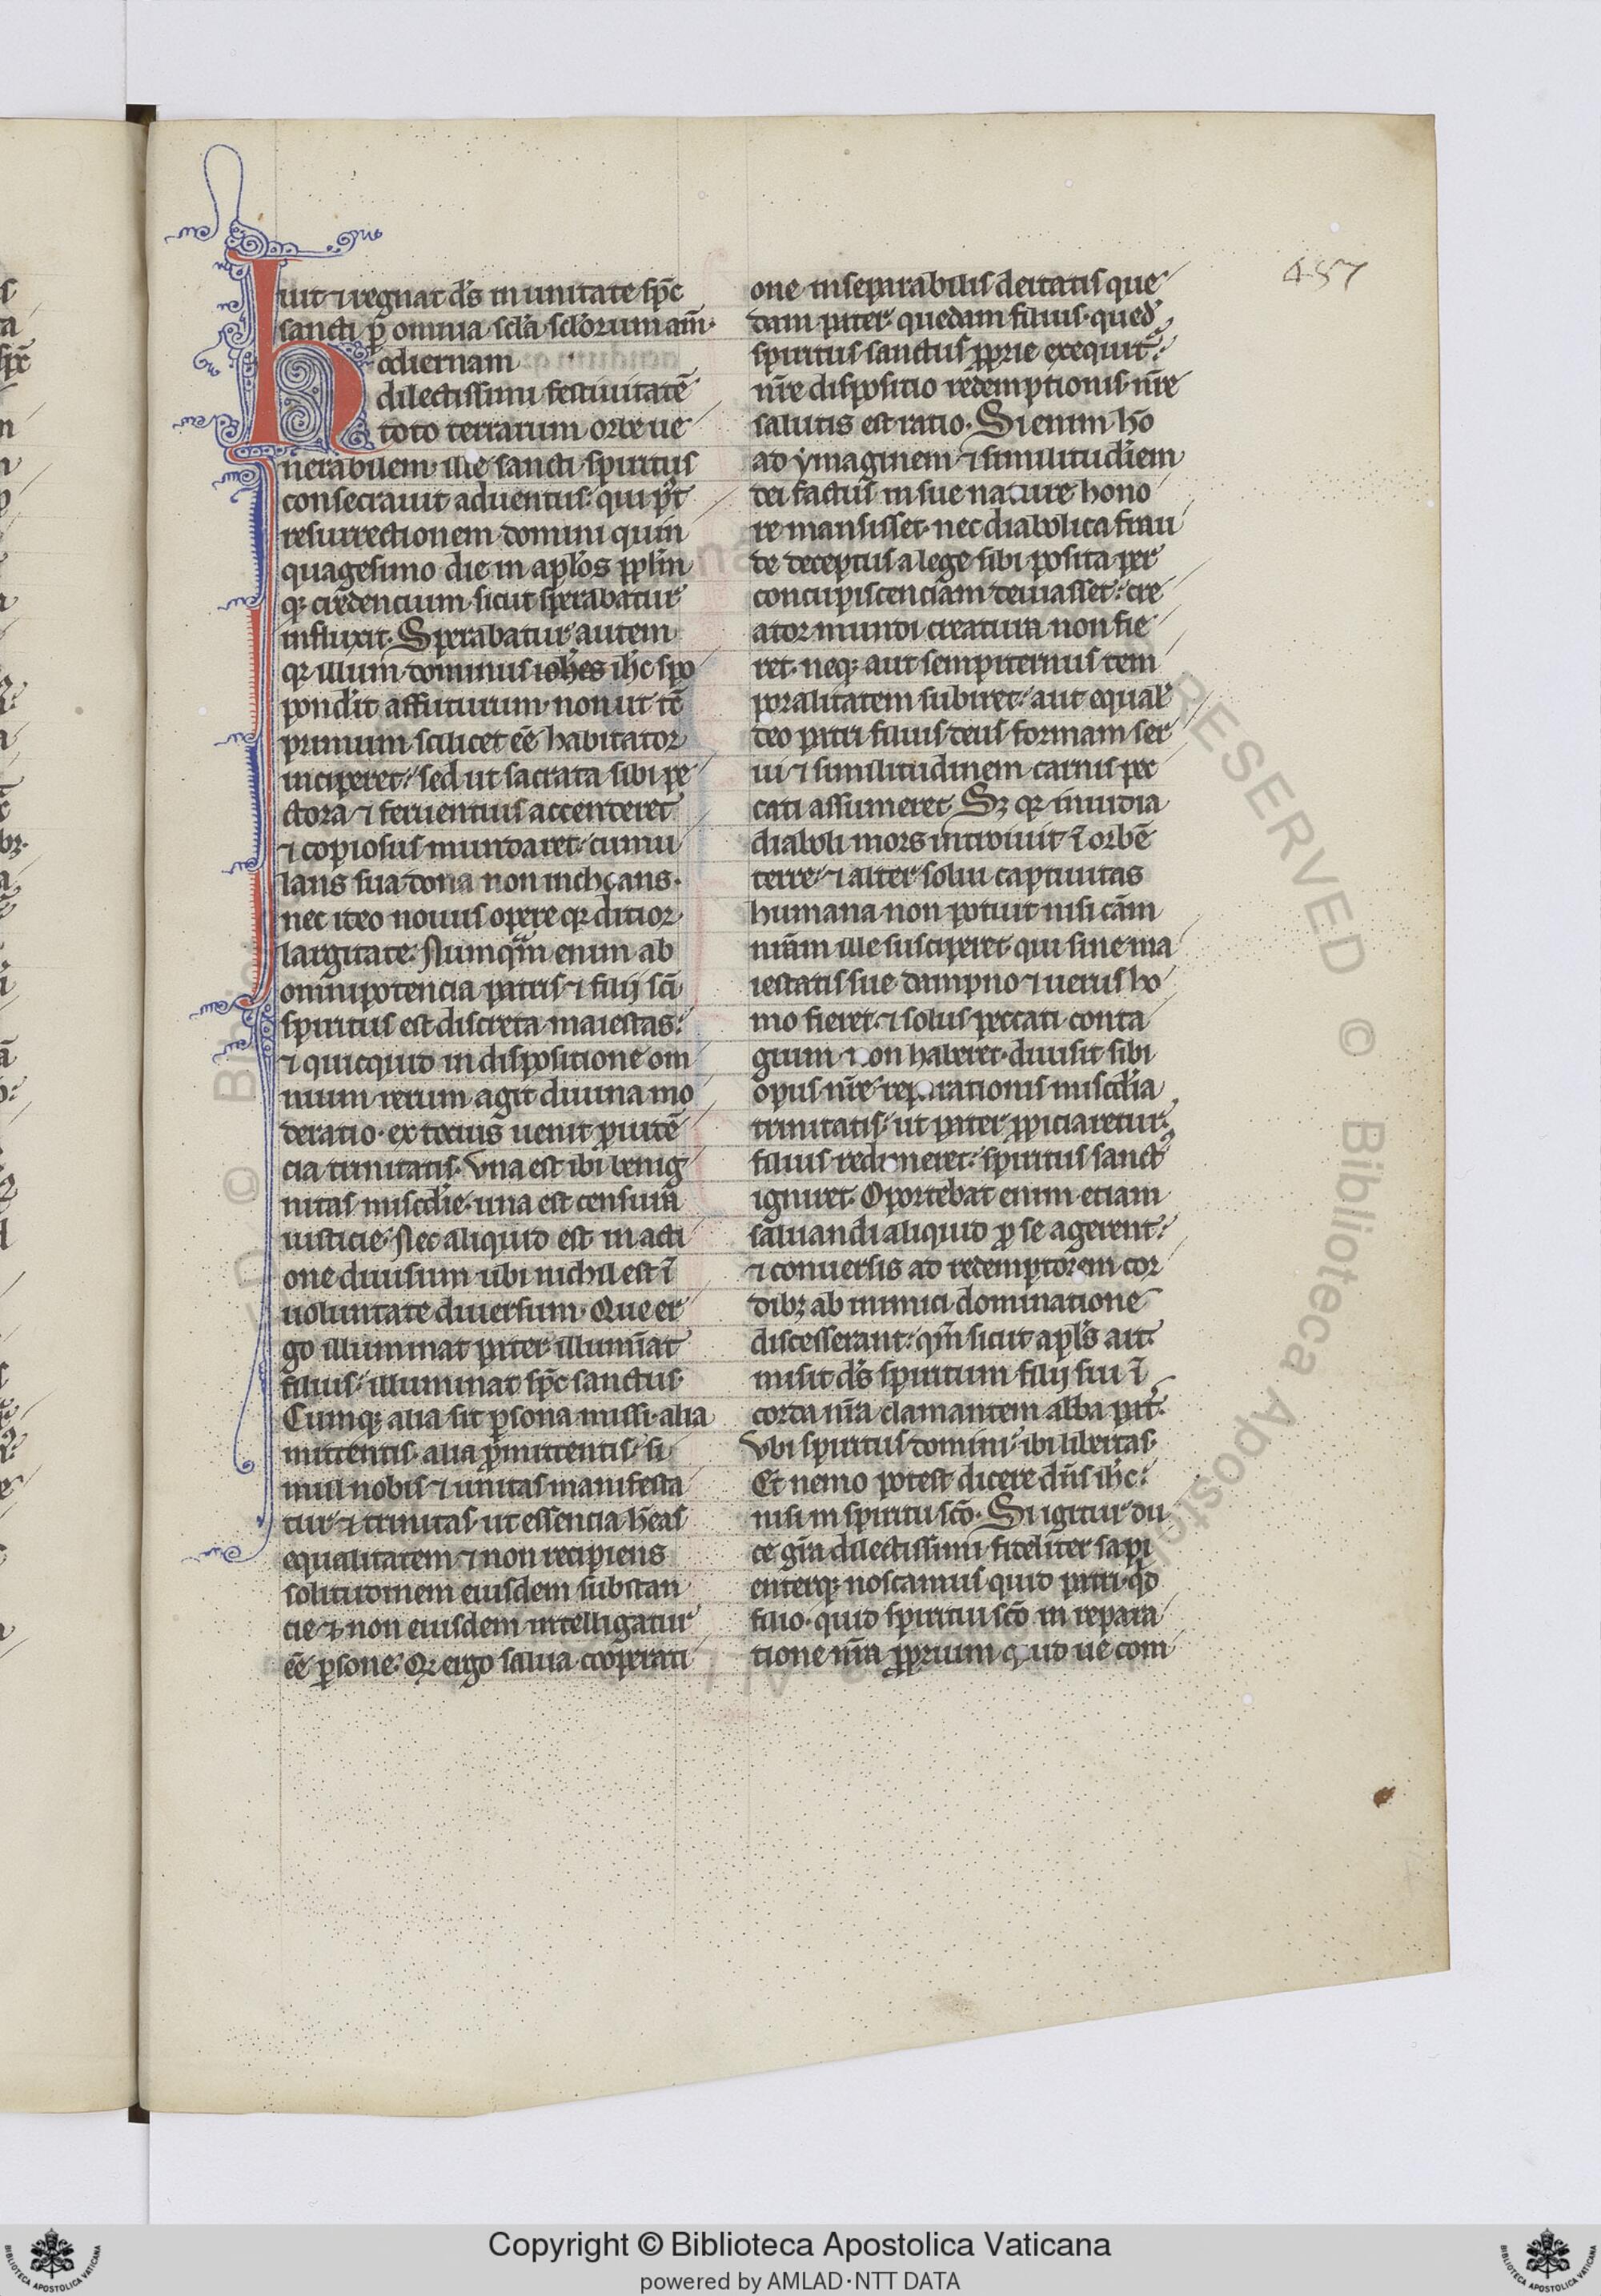 457
uit ⁊ regnat ds̄ in unitate sp̄c
sancti p̄ omnia scl̄a scl̄orum am̄·
Hodiernam
dilectissimi festiuitatē
toto terrarum orbe ue
nerabilem ille sancti spiritus
consecrauit aduentus: qui p̄t
resurrectionem domini quin
quagesimo die in apl̄os ppl̄m
qꝫ credencium sicut sperabatur
influxit· Sperabatur autem
qr illum dominus ioh̄es ih̄c spo
pondit affuturum· non ut tē
primum scilicet eē habitator
inciperet: sed ut sacrata sibi pe
ctora ⁊ feruentius accenderet
⁊ copiosius mundaret· cumu
lans sua dona non inchoans·
nec ideo nouus opere qr ditior
largitate· Numqm̄ enim ab
omnipotencia patris ⁊ filij sc̄i
spiritus est discreta maiestas:
⁊ quicquid in dispositione om
nium rerum agit diuina mo
deratio· ex tocius uenit ꝓuidē
cia trinitatis· Vna est ibi benig
nitas misc̄die· una est censura
iusticie· Nec aliquid est in acti
one diuisum ubi nichil est ī
uoluntate diuersum· Que er
go illuminat pater illumīat
filius· illuminat sp̄c sanctus·
Cumqꝫ alia sit ꝑsona missi· alia
mittentis· alia ꝓmittentis· si
mul nobis ⁊ unitas manifesta
tur ⁊ trinitas· ut essencia h̄ens
equalitatem ⁊ non recipiens
solitudinem eiusdem substan
cie ⁊ non eiusdem intelligatur
eē ꝑsone· Qr ergo salua cooperati
one inseparabilis deitatis que
dam pater· quedam filius· qued̄
spiritus sanctus ꝓprie exequit̄:
nr̄e dispositio redemptionis· nr̄e
salutis est ratio· Si enim hō
ad ymaginem ⁊ similitudinem
dei factus in sue nature hono
re mansisset· nec diabolica frau
de deceptus a lege sibi posita per
concupiscenciam deuiasset: cre
ator mundi creatura non fie
ret· neqꝫ aut sempiternus tem
poralitatem subiret: aut equal̄
deo patri filius deus formam ser
ui ⁊ similitudinem carnis pec
cati assumeret· Sꝫ qr inuidia
diaboli mors introiuit ī orbē
terre· ⁊ aliter solui captiuitas
humana non potuit nisi cām
nr̄am ille susciperet· qui sine ma
iestatis sue dampno ⁊ uerus ho
mo fieret· ⁊ solus peccati conta
gium non haberet· diuisit sibi
opus nr̄e reparationis misc̄dia
trinitatis· ut pater ꝓpiciaretur:
filius redimeret: spiritus sanct⁹
igniret· Oportebat enim etiam
saluandi aliquid ꝓ se agerent:
⁊ conuersis ad redemptorem cor
dibꝫ ab inimici dominatione
discesserant: qm̄ sicut apl̄s ait·
misit ds̄ spiritum filij sui ī
corda nr̄a clamantem abba pat̄·
Vbi spiritus domini· ibi libertas·
Et nemo potest dicere dn̄s ih̄c:
nisi in spiritu sc̄o· Si igitur du
ce gr̄a dilectissimi fideliter sapi
enterqꝫ noscamus quid patri· qd̄
filio· quid spiritui sc̄o in repara
tione nr̄a ꝓprium quid ue com
Copyright © Biblioteca Apostolica Vaticana
powered by AMLAD·NTT DATA